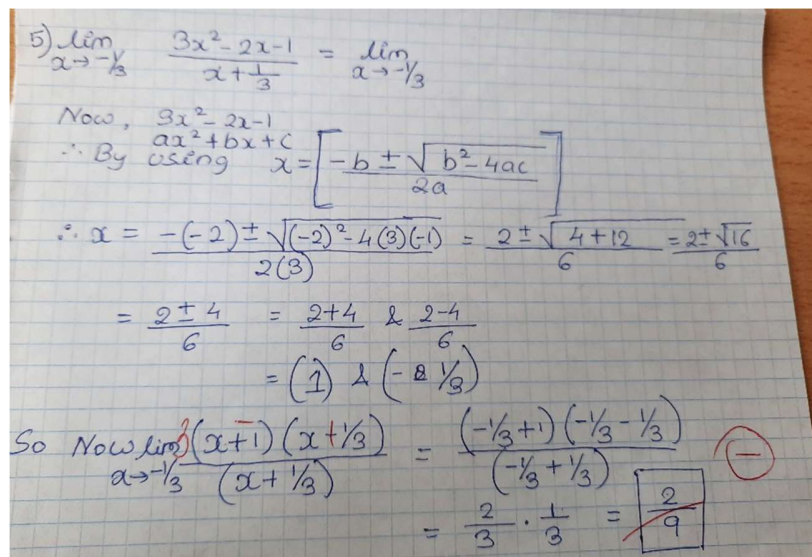 5) lim x→-1/3 (3x²-2x-1)/(x+1/3) = lim x→-1/3
Now, 3x²-2x-1
ax²+bx+c
∴ By using x = [(-b ± √(b²-4ac))/2a]
∴ x = (-(-2) ± √((-2)²-4(3)(-1)))/2(3) = (2 ± √(4+12))/6 = (2 ± √16)/6
= (2 ± 4)/6 = (2+4)/6 & (2-4)/6
= (1) & (-1/3)
So Now lim x→-1/3 3(x-1)(x+1/3)/(x+1/3) = (-1/3+1)(-1/3-1/3)/(-1/3+1/3)
= 2/3 · 1/3 = 2/9